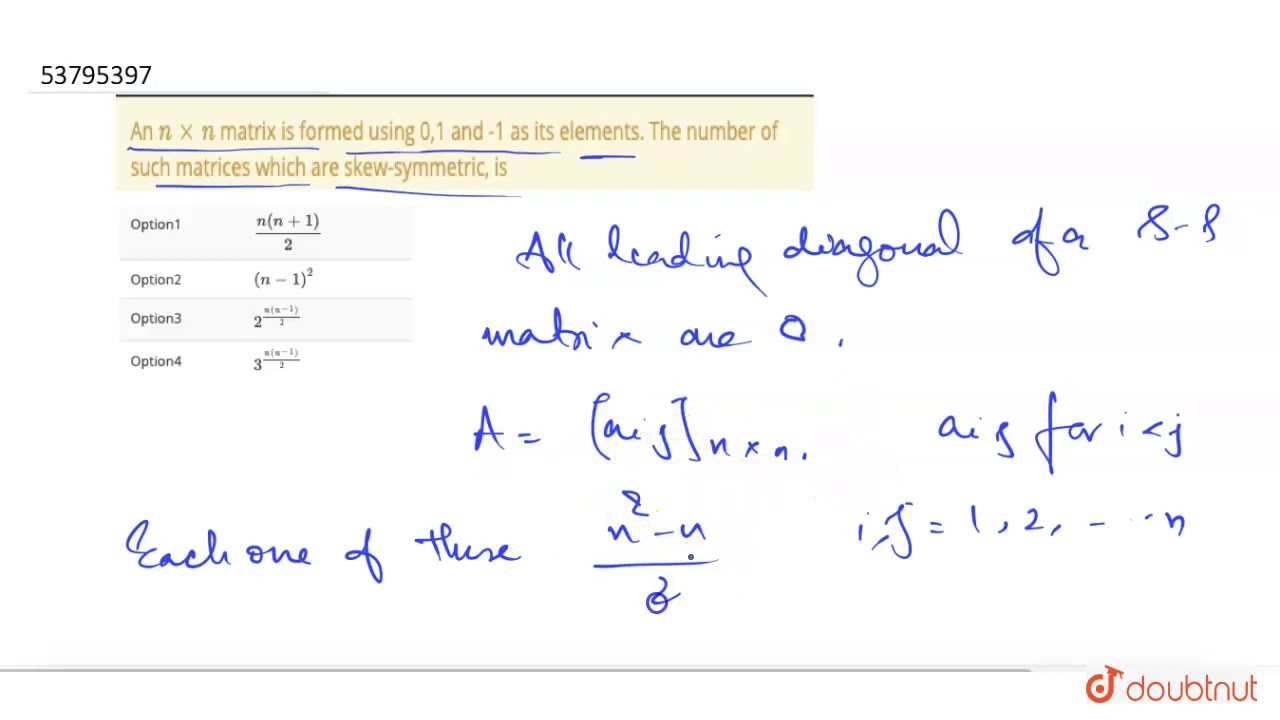 53795397
An n × n matrix is formed using 0,1 and -1 as its elements. The number of
such matrices which are skew-symmetric, is
Option1 n(n + 1)/2
Option2 (n − 1)²
Option3 2^(n(n−1)/2)
Option4 3^(n(n−1)/2)
All leading diagonal of a S-S
matrix are 0.
A = [aij]n×n. aij for i<j
Each one of these (n²-n)/2 i,j = 1, 2, - - - n
doubtnut